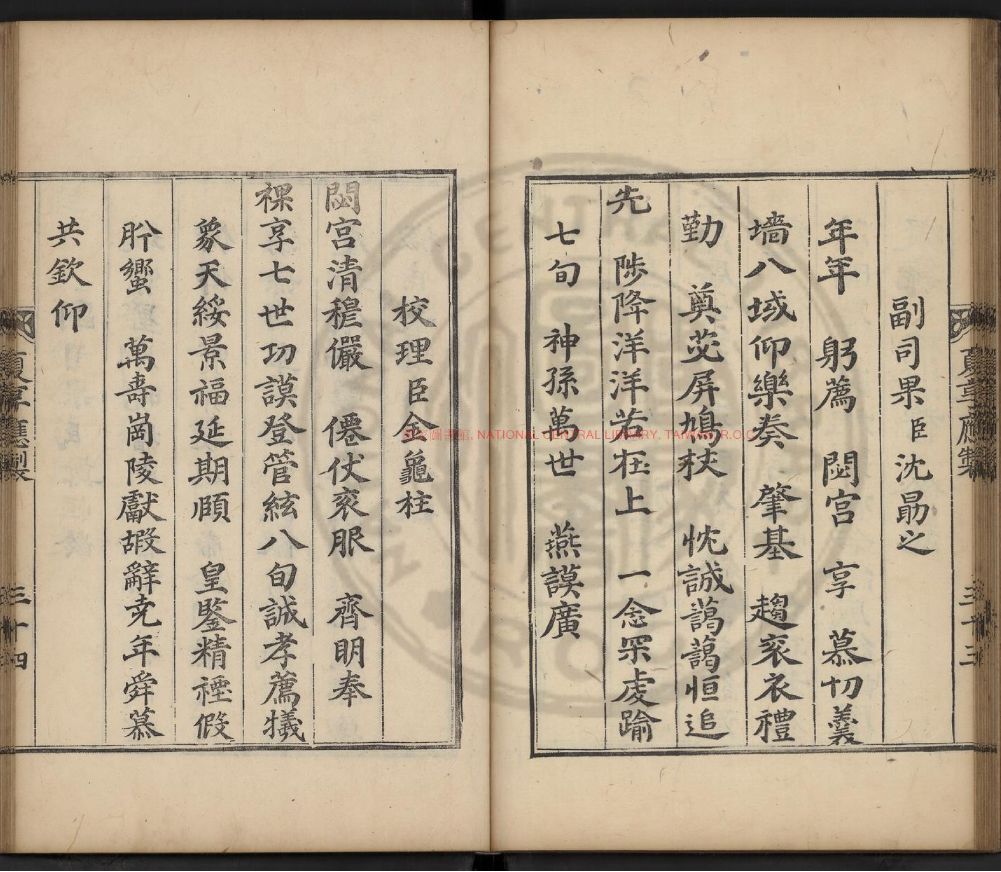 副司果臣沈勗之
年年 躬薦 閟宮 享 慕切羹
墻八域仰樂奏 肇基 趨衮衣禮
勤 奠苾屏鳩杖 忱誠藹藹恒追
先 陟降洋洋若在上 一念罙虔踰
七旬 神孫萬世 燕謨廣
三十三
校理臣金龜柱
閟宮清穆儼 僊仗衮服 齊明奉
祼享七世功謨登管絃八旬誠孝薦犧
象天綏景福延期頤 皇鑒精禋假
肸蠁 萬壽岡陵獻嘏辭堯年舜慕
共欽仰
三十四
國家圖書館, NATIONAL CENTRAL LIBRARY, TAIWAN, R.O.C